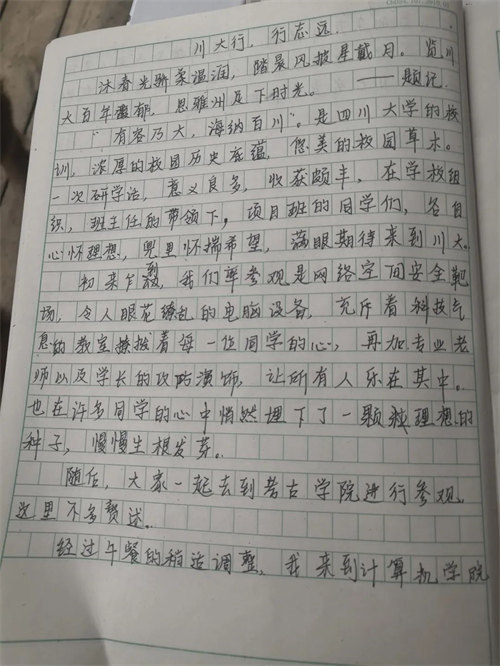 川大行，行志远.
沐春光骄柔温润，踏晨风披星戴月。览川
大百年馥郁，思雅洲足下时光。——题记.
"有容乃大，海纳百川"。是四川大学的校
训，浓厚的校园历史底蕴，优美的校园草木。
一次研学活，意义良多，收获颇丰，在学校组
织，班主任的带领下，项目班的同学们，各自
心怀理想，兜里怀揣希望，满眼期待来到川大。
初来乍到，我们率参观是网络空间安全靶
场，令人眼花缭乱的电脑设备，充斥着科技气
息的教室撩拨着每一位同学的心，再加专业老
师以及学长的攻防演饰，让所有人乐在其中。
也在许多同学的心中悄然埋下了一颗理想的
种子，慢慢生根发芽。
随后，大家一起去到考古学院进行参观，
这里不多赘述.
经过午餐的稍适调整，我来到计算机学院